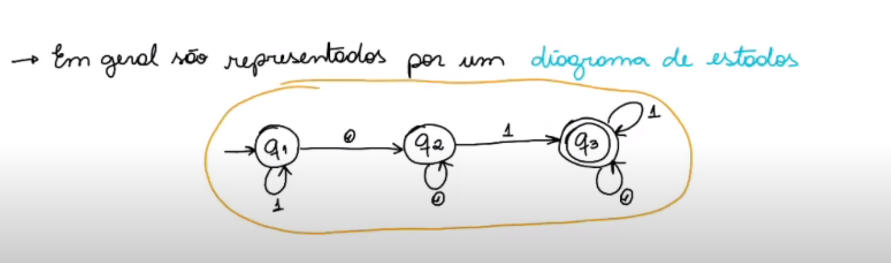 → Em geral são representados por um diagrama de estados
0 1 1
q1 q2 q3
1 0 0